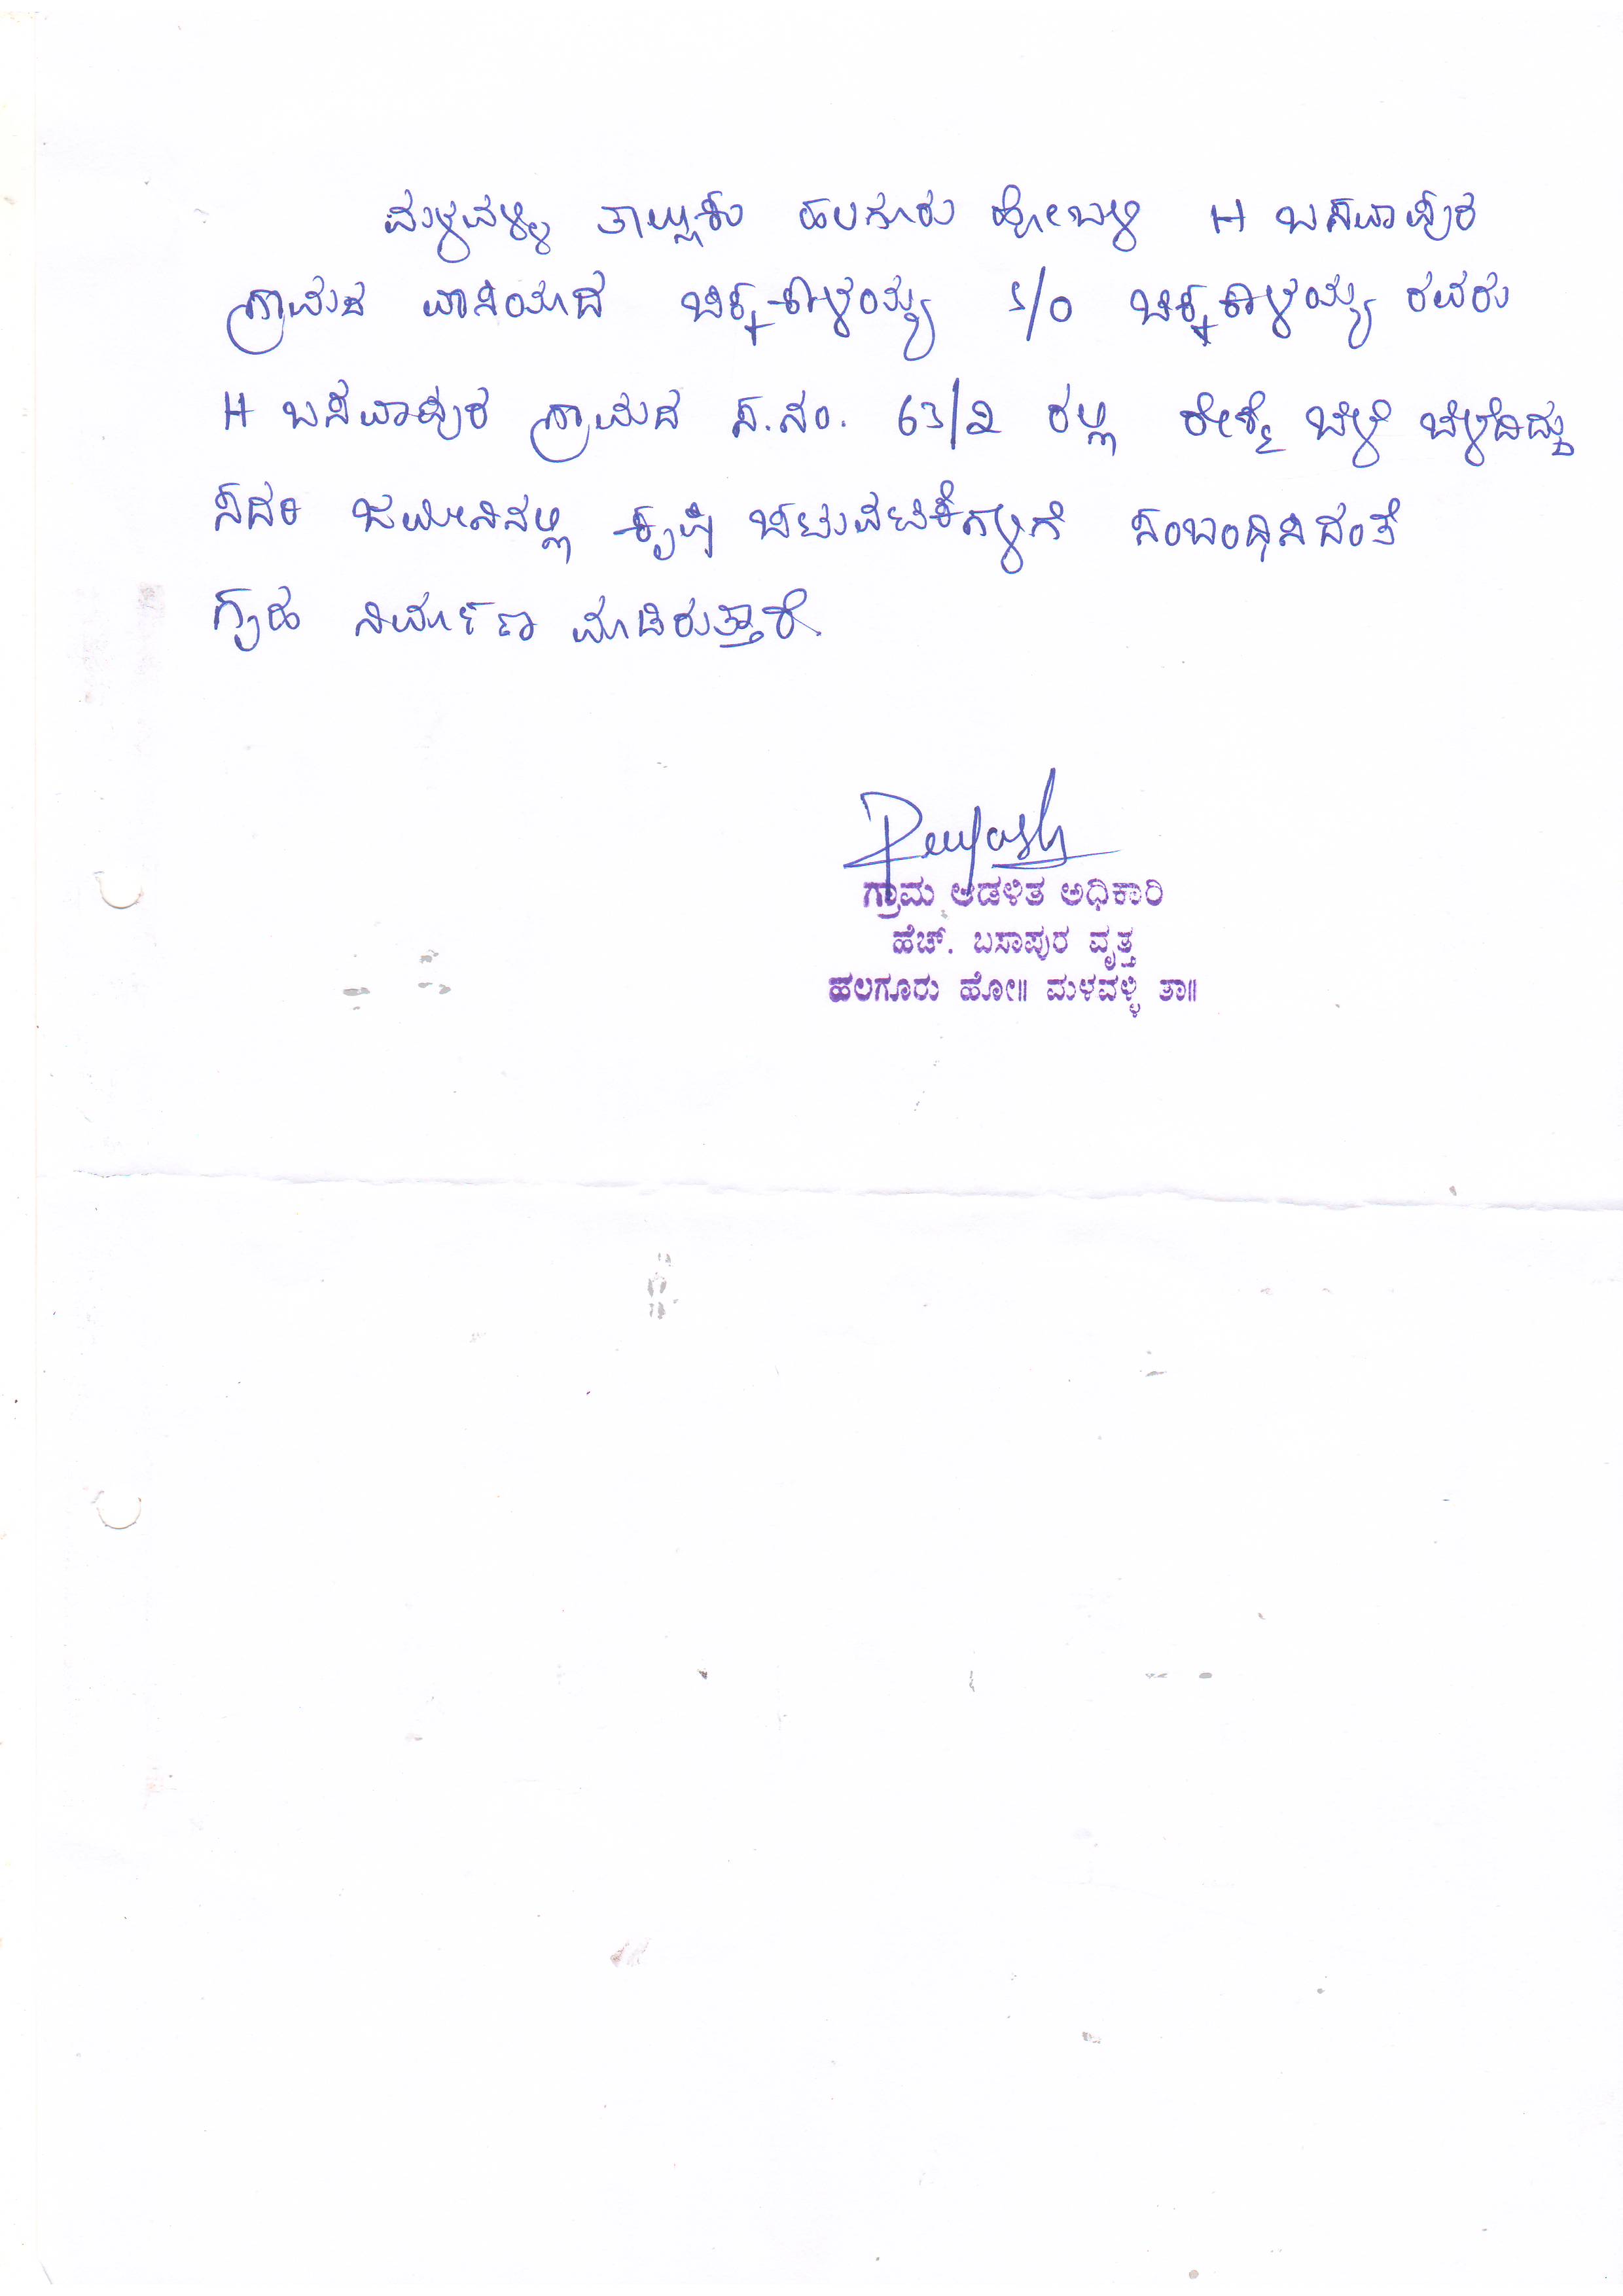 ಮಳವಳ್ಳಿ ತಾಲ್ಲೂಕು ಹಲಗೂರು ಹೋಬಳಿ H ಬಸವಾಪುರ
ಗ್ರಾಮದ ವಾಸಿಯಾದ ಚಿಕ್ಕಕಾಳಯ್ಯ S/O ಚಿಕ್ಕಕಾಳಯ್ಯ ರವರು
H ಬಸವಾಪುರ ಗ್ರಾಮದ ಸ.ನಂ. 63/2 ರಲ್ಲಿ ರೇಶ್ಮೆ ಬೆಳೆ ಬೆಳೆದಿದ್ದು
ಸದರಿ ಜಮೀನಿನಲ್ಲಿ ಕೃಷಿ ಚಟುವಟಿಕೆಗಳಿಗೆ ಸಂಬಂಧಿಸಿದಂತೆ
ಗೃಹ ನಿರ್ಮಾಣ ಮಾಡಿರುತ್ತಾರೆ.
ಗ್ರಾಮ ಆಡಳಿತ ಅಧಿಕಾರಿ
ಹೆಚ್. ಬಸಾಪುರ ವೃತ್ತ
ಹಲಗೂರು ಹೋ॥ ಮಳವಳ್ಳಿ ತಾ॥